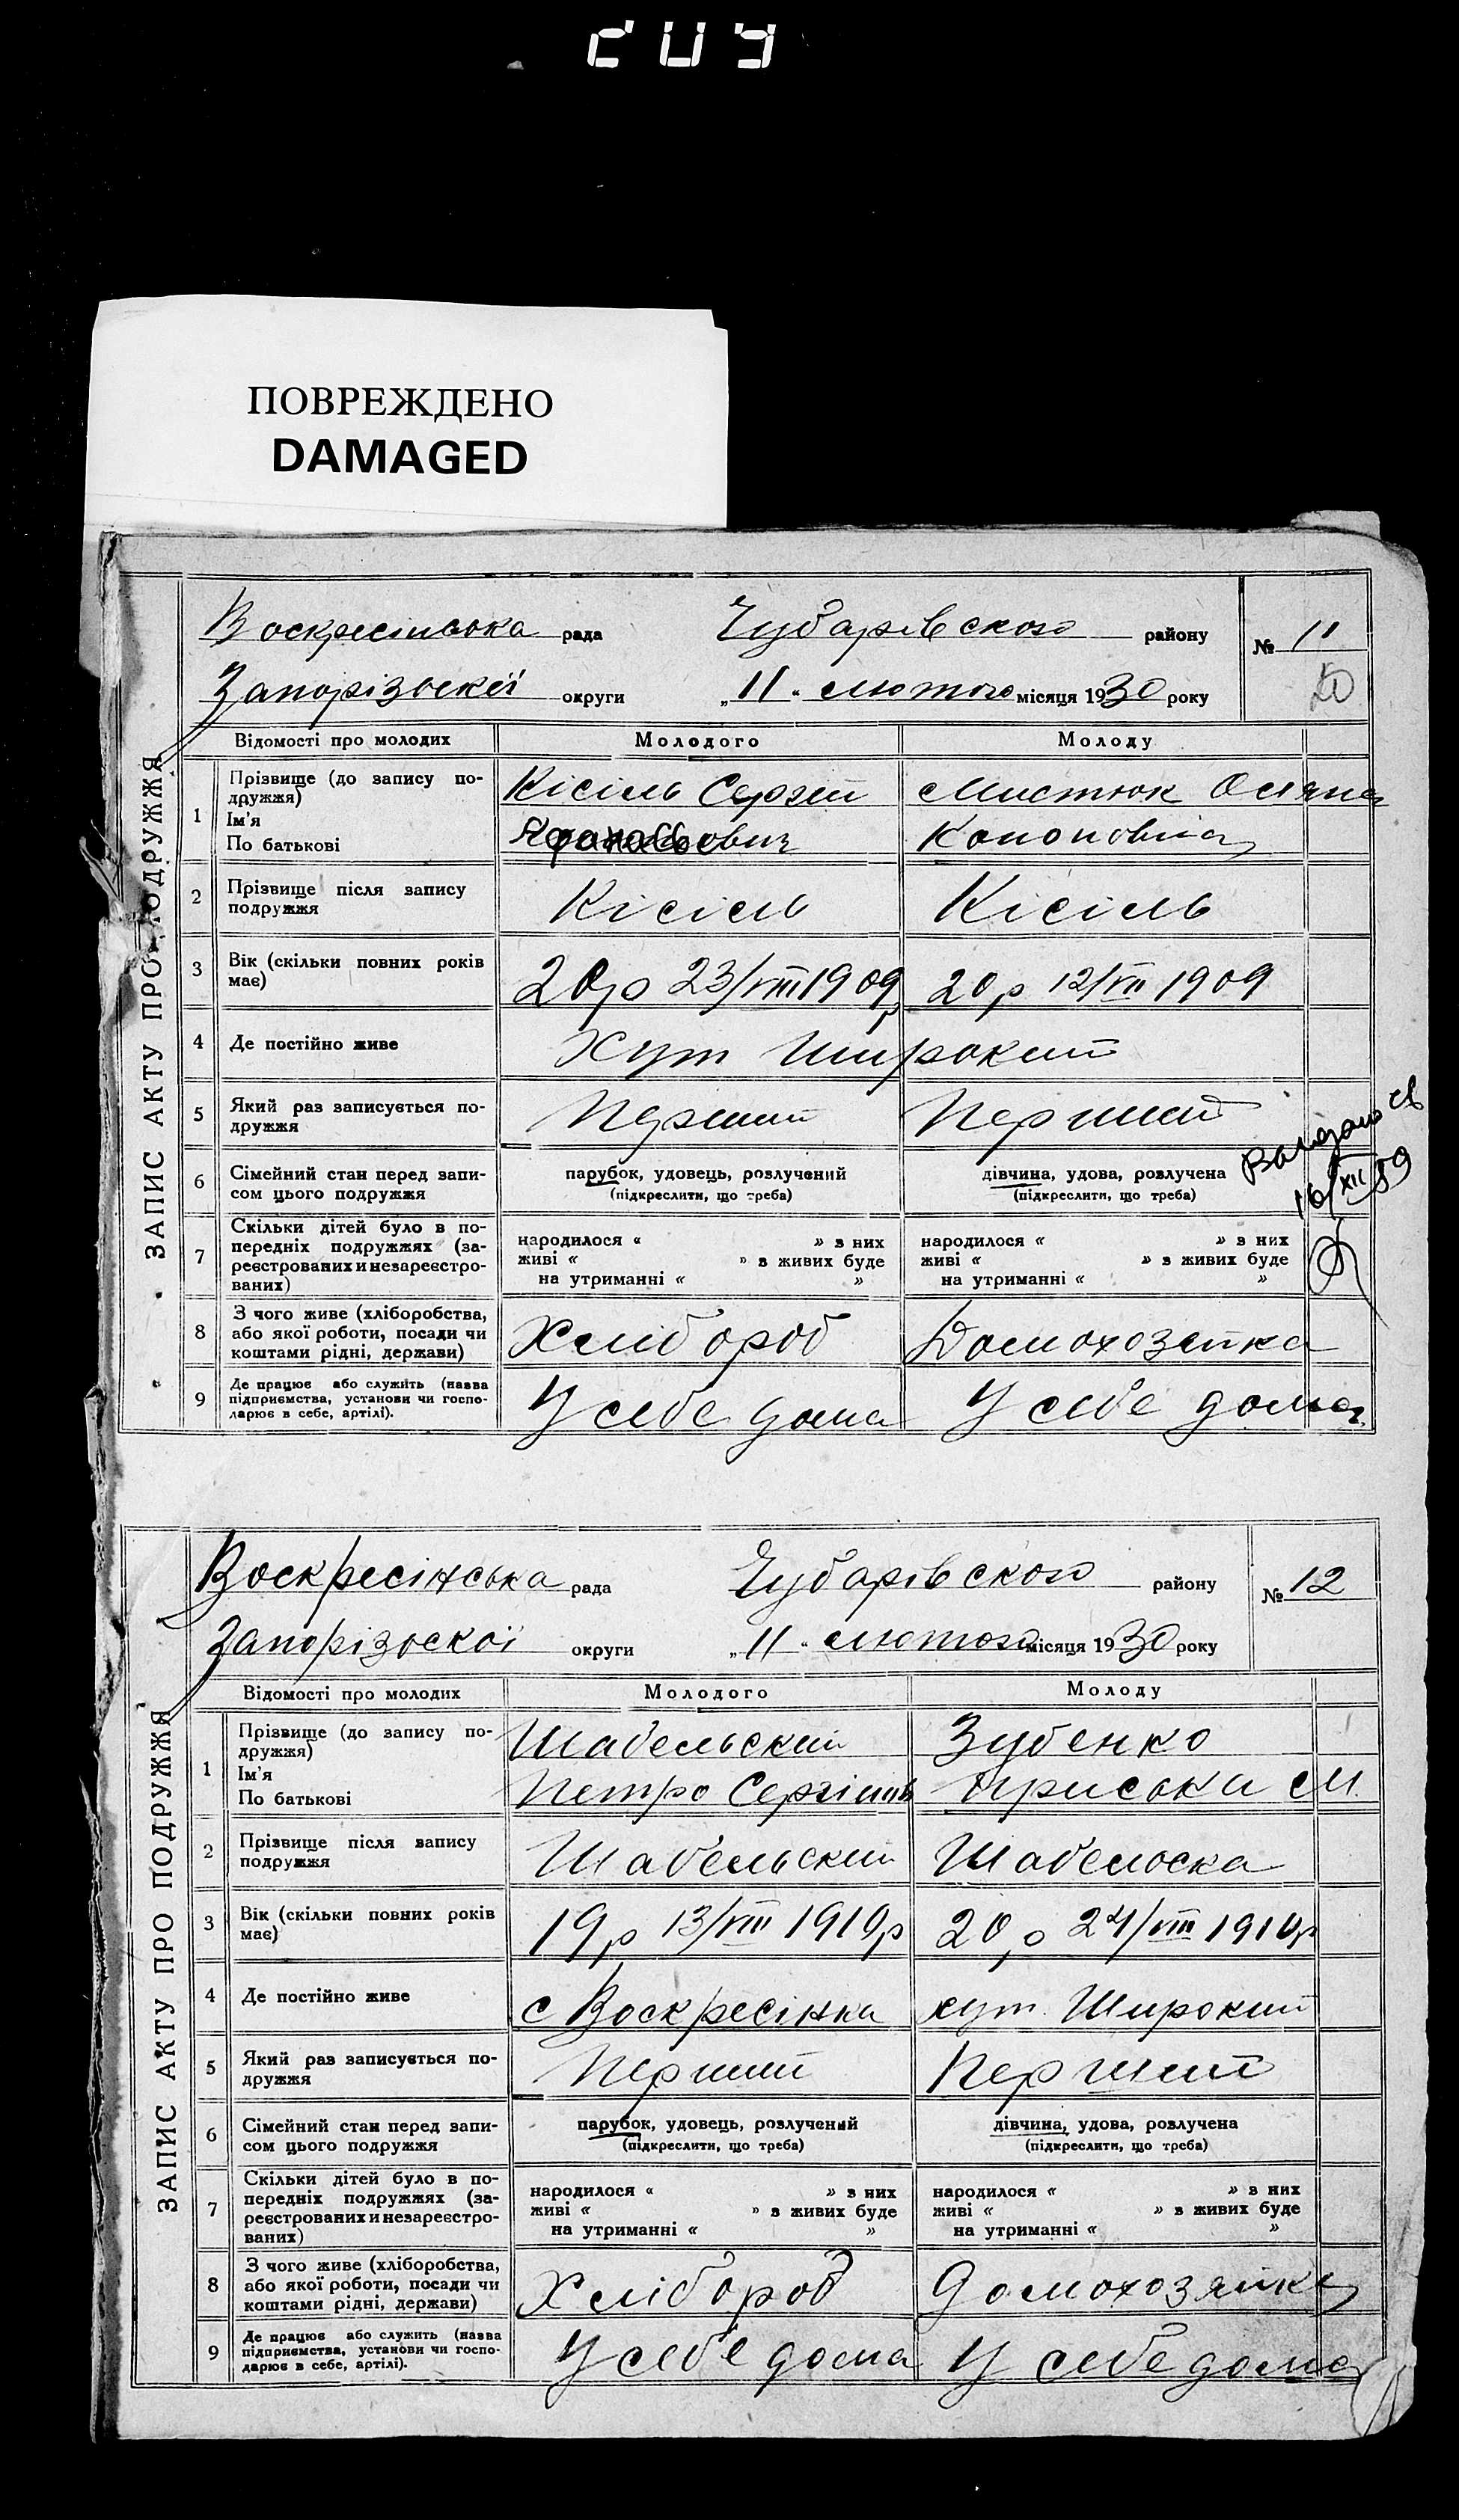 209
ПОВРЕЖДЕНО
DAMAGED
ЗАПИС АКТУ ПРО ПОДРУЖЖЯ
Воскресінська рада Чубарівского району № 11
Запорізької округи „11" лютого місяця 1930 року
Відомості про молодих Молодого Молоду
1 Прізвище (до запису по-
дружжя)
Ім'я
По батькові
Кісіль Сергій
Мистюк Оляна
Кононовна
2 Прізвище після запису
подружжя
Кісіль Кісіль
3 Вік (скільки повних років
має)
20р 23/VIII 1909р 20р 12/VII 1909
4 Де постійно живе Хут Широкий
5 Який раз записується по-
дружжя
Перший Перший
6 Сімейний стан перед запи-
сом цього подружжя
парубок, удовець, розлучений
(підкреслити, що треба)
дівчина, удова, розлучена
(підкреслити, що треба)
16/XII 59
7 Скільки дітей було в по-
передніх подружжях (за-
реєстрованих и незареєстро-
ваних)
народилося « » з них
живі « » в живих буде
на утриманні « »
народилося « » в них
живі « » в живих буде
на утриманні « »
8 З чого живе (хліборобства,
або якої роботи, посади чи
коштами рідні, держави)
Хлібороб Домохозяйка
9 Де працює або служить (назва
підприємства, установи чи госпо-
дарює в себе, артілі).
У себе дома У себе дома
ЗАПИС АКТУ ПРО ПОДРУЖЖЯ
Воскресінська рада Чубарівского району № 12
Запорізської округи „11" лютого місяця 1930 року
Відомості про молодих Молодого Молоду
1 Прізвище (до запису по-
дружжя)
Ім'я
По батькові
Шабельський Зубенко
Петро Сергійов Приська М.
2 Прізвище після запису
подружжя
Шабельский Шабельска
3 Вік (скільки повних років
має)
19р 13/VIII 1910р 20р 24/VIII 1910р
4 Де постійно живе с Воскресінка хут. Широкий
5 Який раз записується по-
дружжя
Перший Перший
6 Сімейний стан перед запи-
сом цього подружжя
парубок, удовець, розлучений
(підкреслити, що треба)
дівчина, удова, розлучена
(підкреслити, що треба)
7 Скільки дітей було в по-
передніх подружжях (за-
реєстрованих и незареєстро-
ваних)
народилося « » в них
живі « » в живих буде
на утриманні « »
народилося « » в них
живі « » в живих буде
на утриманні « »
8 З чого живе (хліборобства,
або якої роботи, посади чи
коштами рідні, держави)
Хлібороб Домохозяйка
9 Де працює або служить (назва
підприємства, установи чи госпо-
дарює в себе, артілі).
У себе дома У себе дома